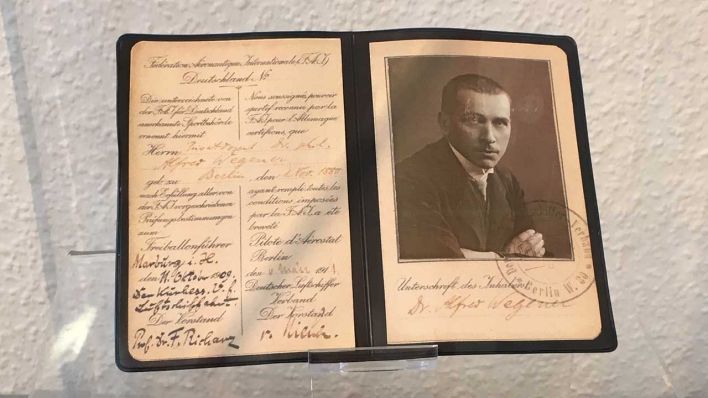 Fédération Aéronautique Internationale (F.A.I.)
Deutschland No
Die unterzeichnete von
der F.A.I. für Deutschland
anerkannte Sportbehörde
ernennt hiermit
Herrn Privatdozent Dr. phil.
Alfred Wegener
geb. zu Berlin
nach Erfüllung aller von
der F.A.I. vorgeschriebenen
Prüfungsbestimmungen
zum
Freiballonführer
Marburg i. H.
den 11. Oktober 1909.
Der Kurhess. V. f.
Luftschiffahrt.
Der Vorstand
Prof. Dr. F. Richarz
Nous soussignés pouvoir
sportif reconnu par la
F.A.I. pour l'Allemagne
certifions, que
den 1. Nov. 1880
ayant rempli toutes les
conditions imposées
par la F.A.I. a été
breveté
Pilote d'Aérostat
Berlin
den März 1911
Deutscher Luftschiffer
Verband
Der Vorstand
Unterschrift des Inhabers
Dr. Alfred Wegener
Berlin W.